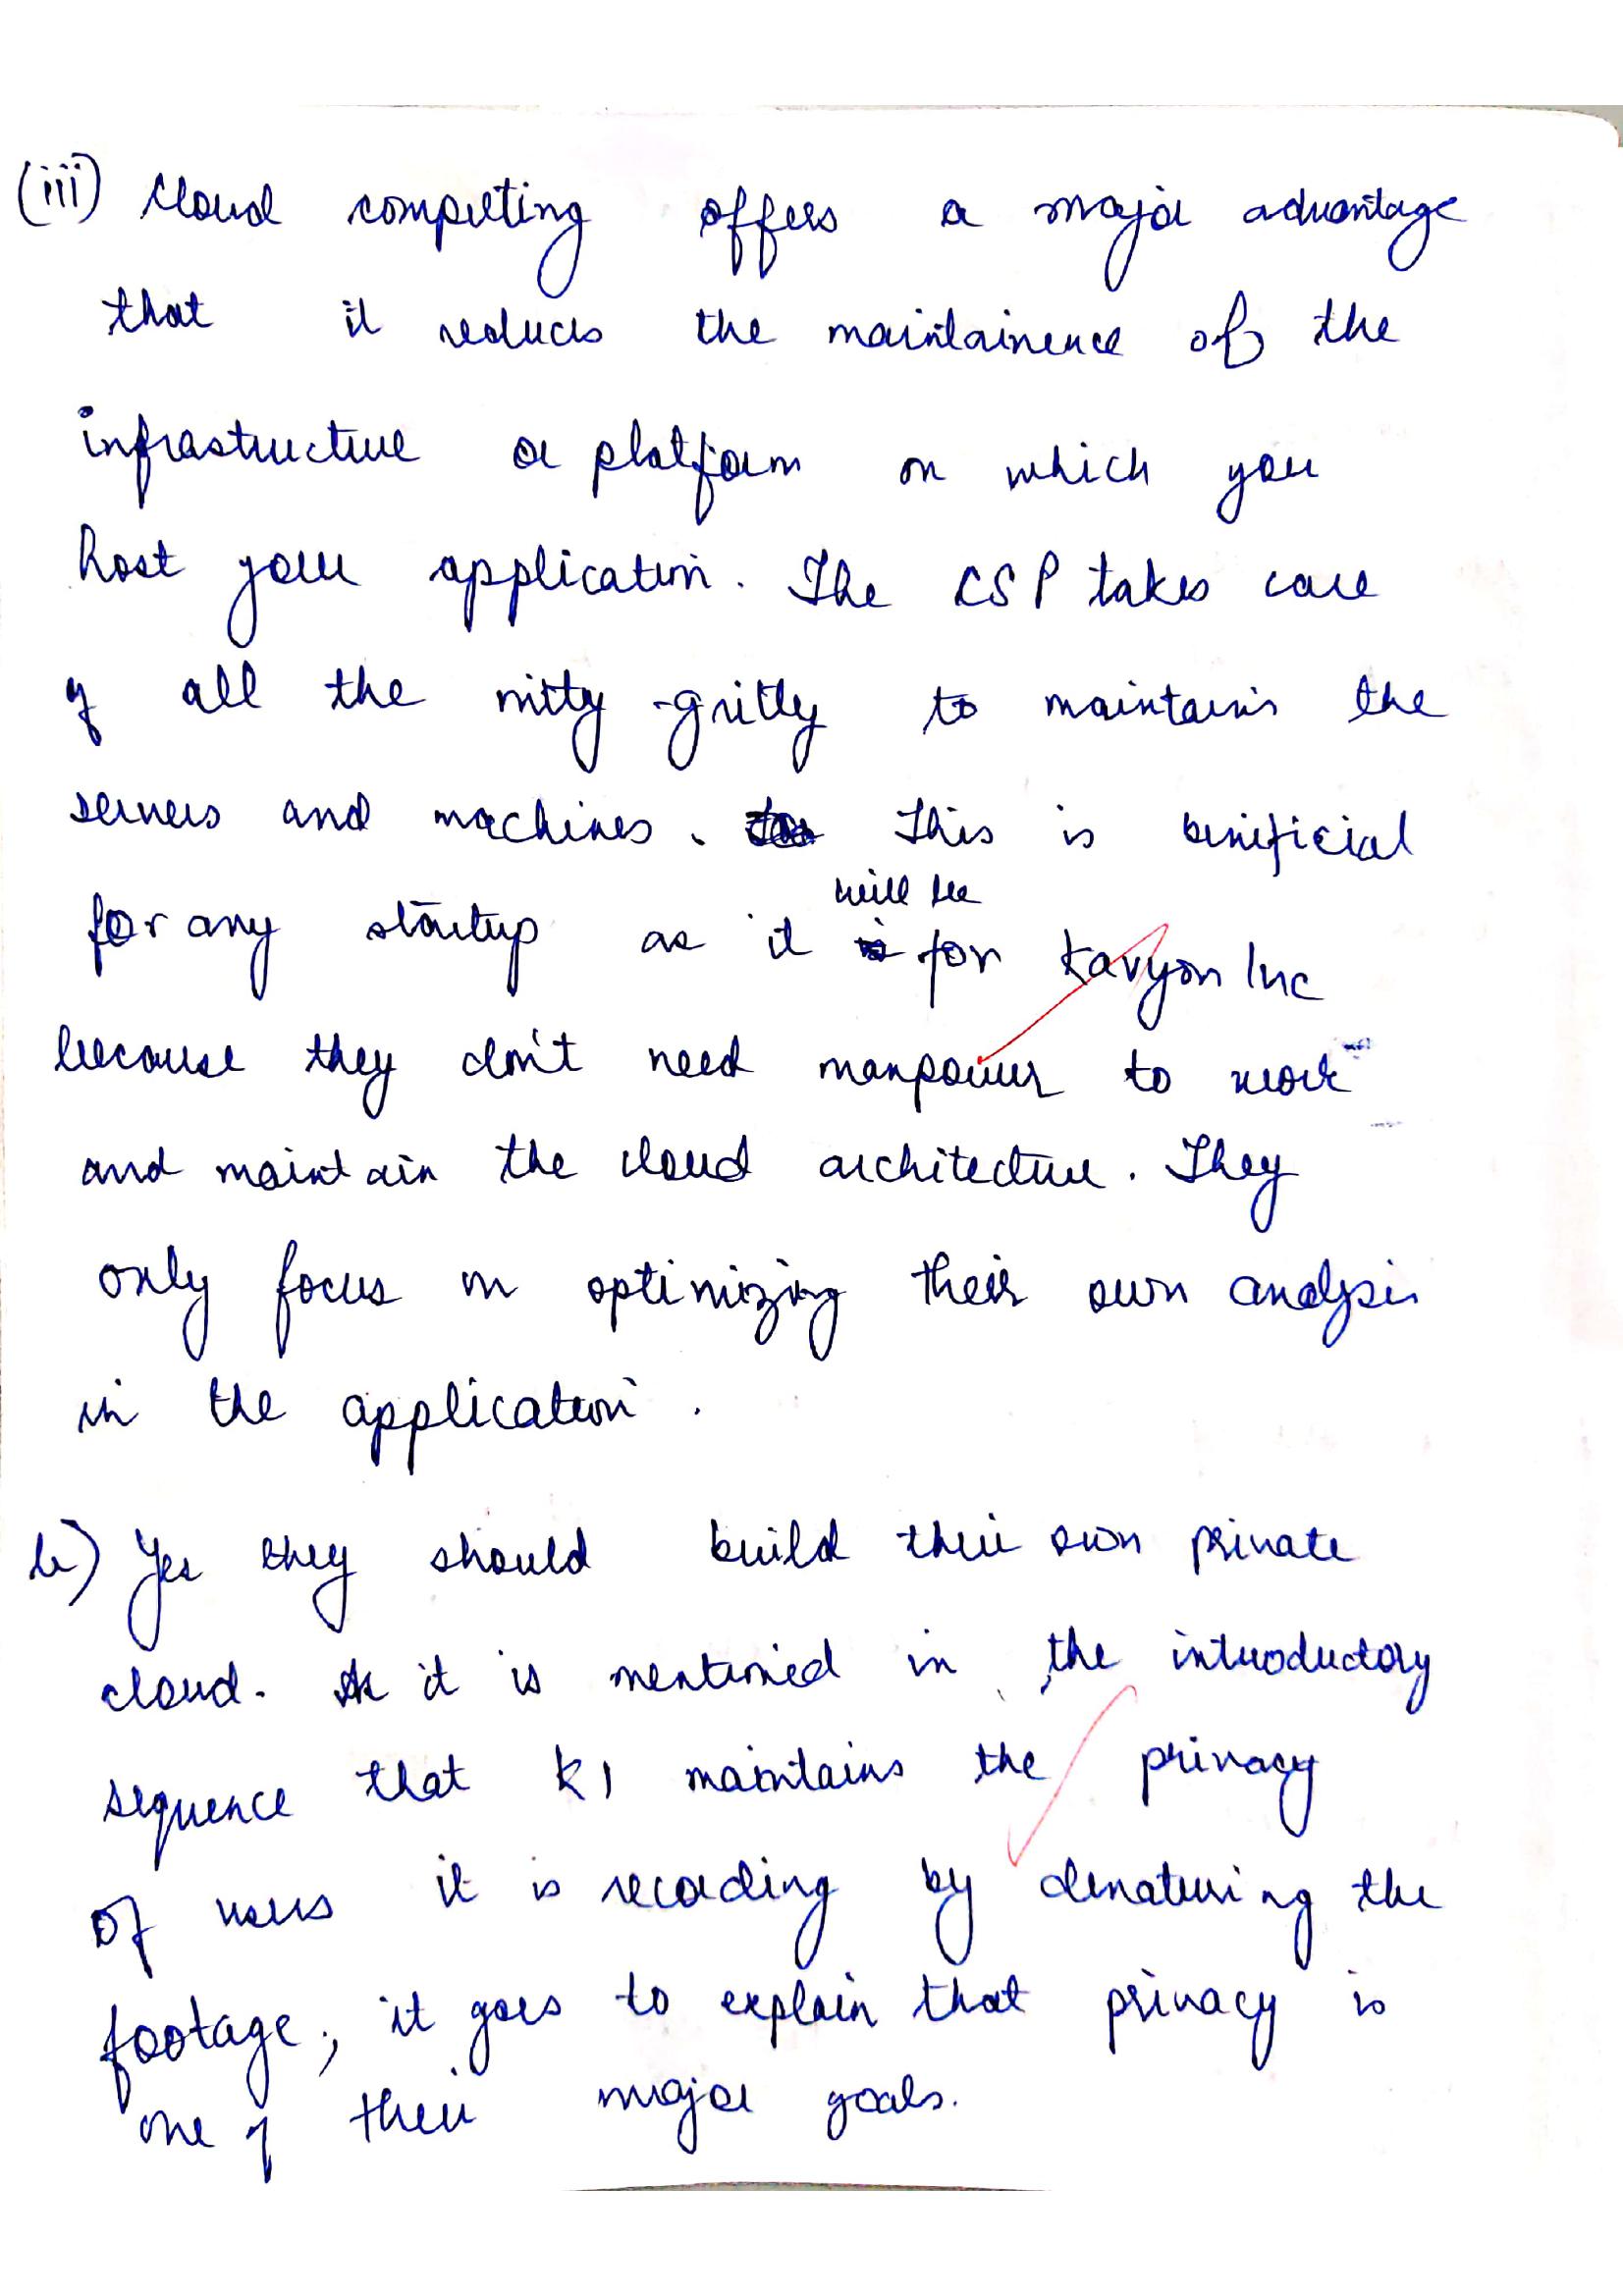 (iii) Cloud computing offers a major advantage
that it reduces the maintainence of the
infrastructure or platform on which you
host your application. The CSP takes care
of all the nitty-gritty to maintain the
servers and machines. This is benificial
for any startup as it will be for Kavyon Inc
because they don't need manpower to work
and maintain the cloud architecture. They
only focus on optimizing their own analysis
in the application.
b) Yes they should build their own private
cloud. As it is mentioned in the introductory
sequence that KI maintains the privacy
of users it is recording by denaturing the
footage, it goes to explain that privacy is
one of their major goals.